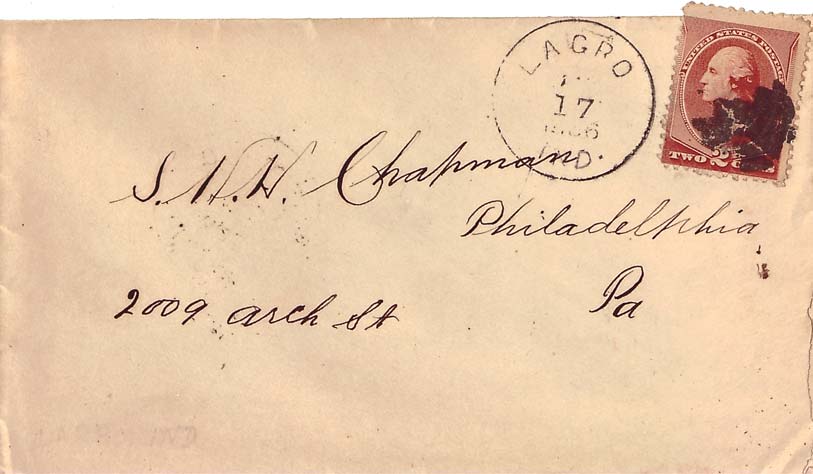 LAGRO
17
1886
IND.
UNITED STATES POSTAGE
TWO 2
S. H. H. Chapman
Philadelphia
2009 arch St
Pa